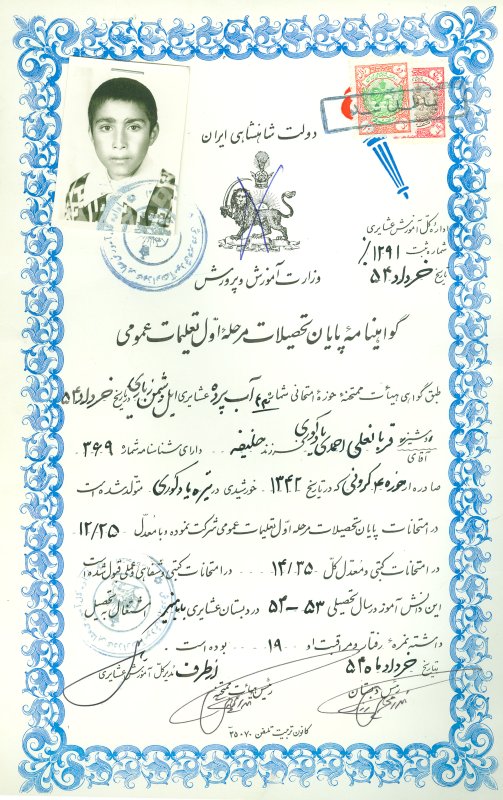 دولت شاهنشاهی ایران
وزارت آموزش و پرورش
اداره کل آموزش عشایری
شماره ثبت ۱۲۹۱
تاریخ خرداد ۵۴
گواهینامهٔ پایان تحصیلات مرحلهٔ اول تعلیمات عمومی
طبق گواهی هیأت ممتحنهٔ حوزهٔ امتحانی شماره آب پرده عشایری ایل دشمن زیاری در تاریخ خرداد ۵۴
دوشیزه
آقای قربانعلی احمدی یادکوری فرزند حنیفه دارای شناسنامه شماره ۳۶۹
صادره از حوزه ۴ کرونی که در تاریخ ۱۳۴۲ خورشیدی در تیره یادکوری متولد شده است
در امتحانات پایان تحصیلات مرحلهٔ اول تعلیمات عمومی شرکت نموده و با معدل ۱۲/۲۵
در امتحانات کتبی و معدل کل ۱۴/۳۵ در امتحانات کتبی و شفاهی و عملی قبول شده است
این دانش آموز در سال تحصیلی ۵۳-۵۴ در دبستان عشایری اشتغال بتحصیل
داشته نمرهٔ رفتار و مراقبت او ۱۹ بوده است
بتاریخ خرداد ماه ۵۴
از طرف مدیر کل آموزش عشایری
رئیس هیأت ممتحنه
رئیس دبستان
کانون تربیت تلفن ۳۵۰۷۰